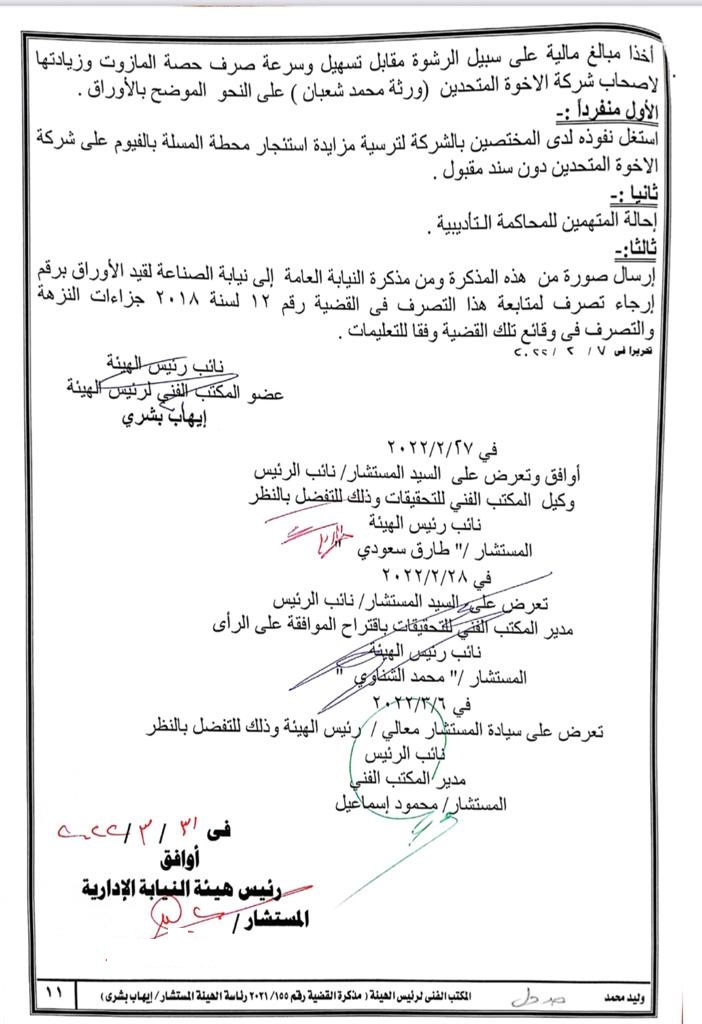 أخذا مبالغ مالية على سبيل الرشوة مقابل تسهيل وسرعة صرف حصة المازوت وزيادتها
لاصحاب شركة الاخوة المتحدين (ورثة محمد شعبان ) على النحو الموضح بالأوراق .
الأول منفرداً :-
استغل نفوذه لدى المختصين بالشركة لترسية مزايدة استئجار محطة المسلة بالفيوم على شركة
الاخوة المتحدين دون سند مقبول .
ثانيا :-
إحالة المتهمين للمحاكمة التأديبية .
ثالثا:-
إرسال صورة من هذه المذكرة ومن مذكرة النيابة العامة إلى نيابة الصناعة لقيد الأوراق برقم
إرجاء تصرف لمتابعة هذا التصرف فى القضية رقم ١٢ لسنة ٢٠١٨ جزاءات النزهة
والتصرف فى وقائع تلك القضية وفقا للتعليمات .
تحريرا فى ٧ / ٢ / ٢٠٢٢
نائب رئيس الهيئة
عضو المكتب الفني لرئيس الهيئة
إيهاب بشري
في ٢٠٢٢/٢/٢٧
أوافق وتعرض على السيد المستشار/ نائب الرئيس
وكيل المكتب الفني للتحقيقات وذلك للتفضل بالنظر
نائب رئيس الهيئة
المستشار /" طارق سعودي "
في ٢٠٢٢/٢/٢٨
تعرض على السيد المستشار/ نائب الرئيس
مدير المكتب الفني للتحقيقات باقتراح الموافقة على الرأى
نائب رئيس الهيئة
المستشار /" محمد الشناوي "
في ٢٠٢٢/٣/٦
تعرض على سيادة المستشار معالي / رئيس الهيئة وذلك للتفضل بالنظر
نائب الرئيس
مدير المكتب الفني
المستشار/ محمود إسماعيل
فى ٣١ / ٣ / ٢٠٢٢
أوافق
رئيس هيئة النيابة الإدارية
المستشار /
وليد محمد
المكتب الفنى لرئيس الهيئة ( مذكرة القضية رقم ٢٠٢١/١٥٥ رئاسة الهيئة المستشار / إيهاب بشرى )
١١